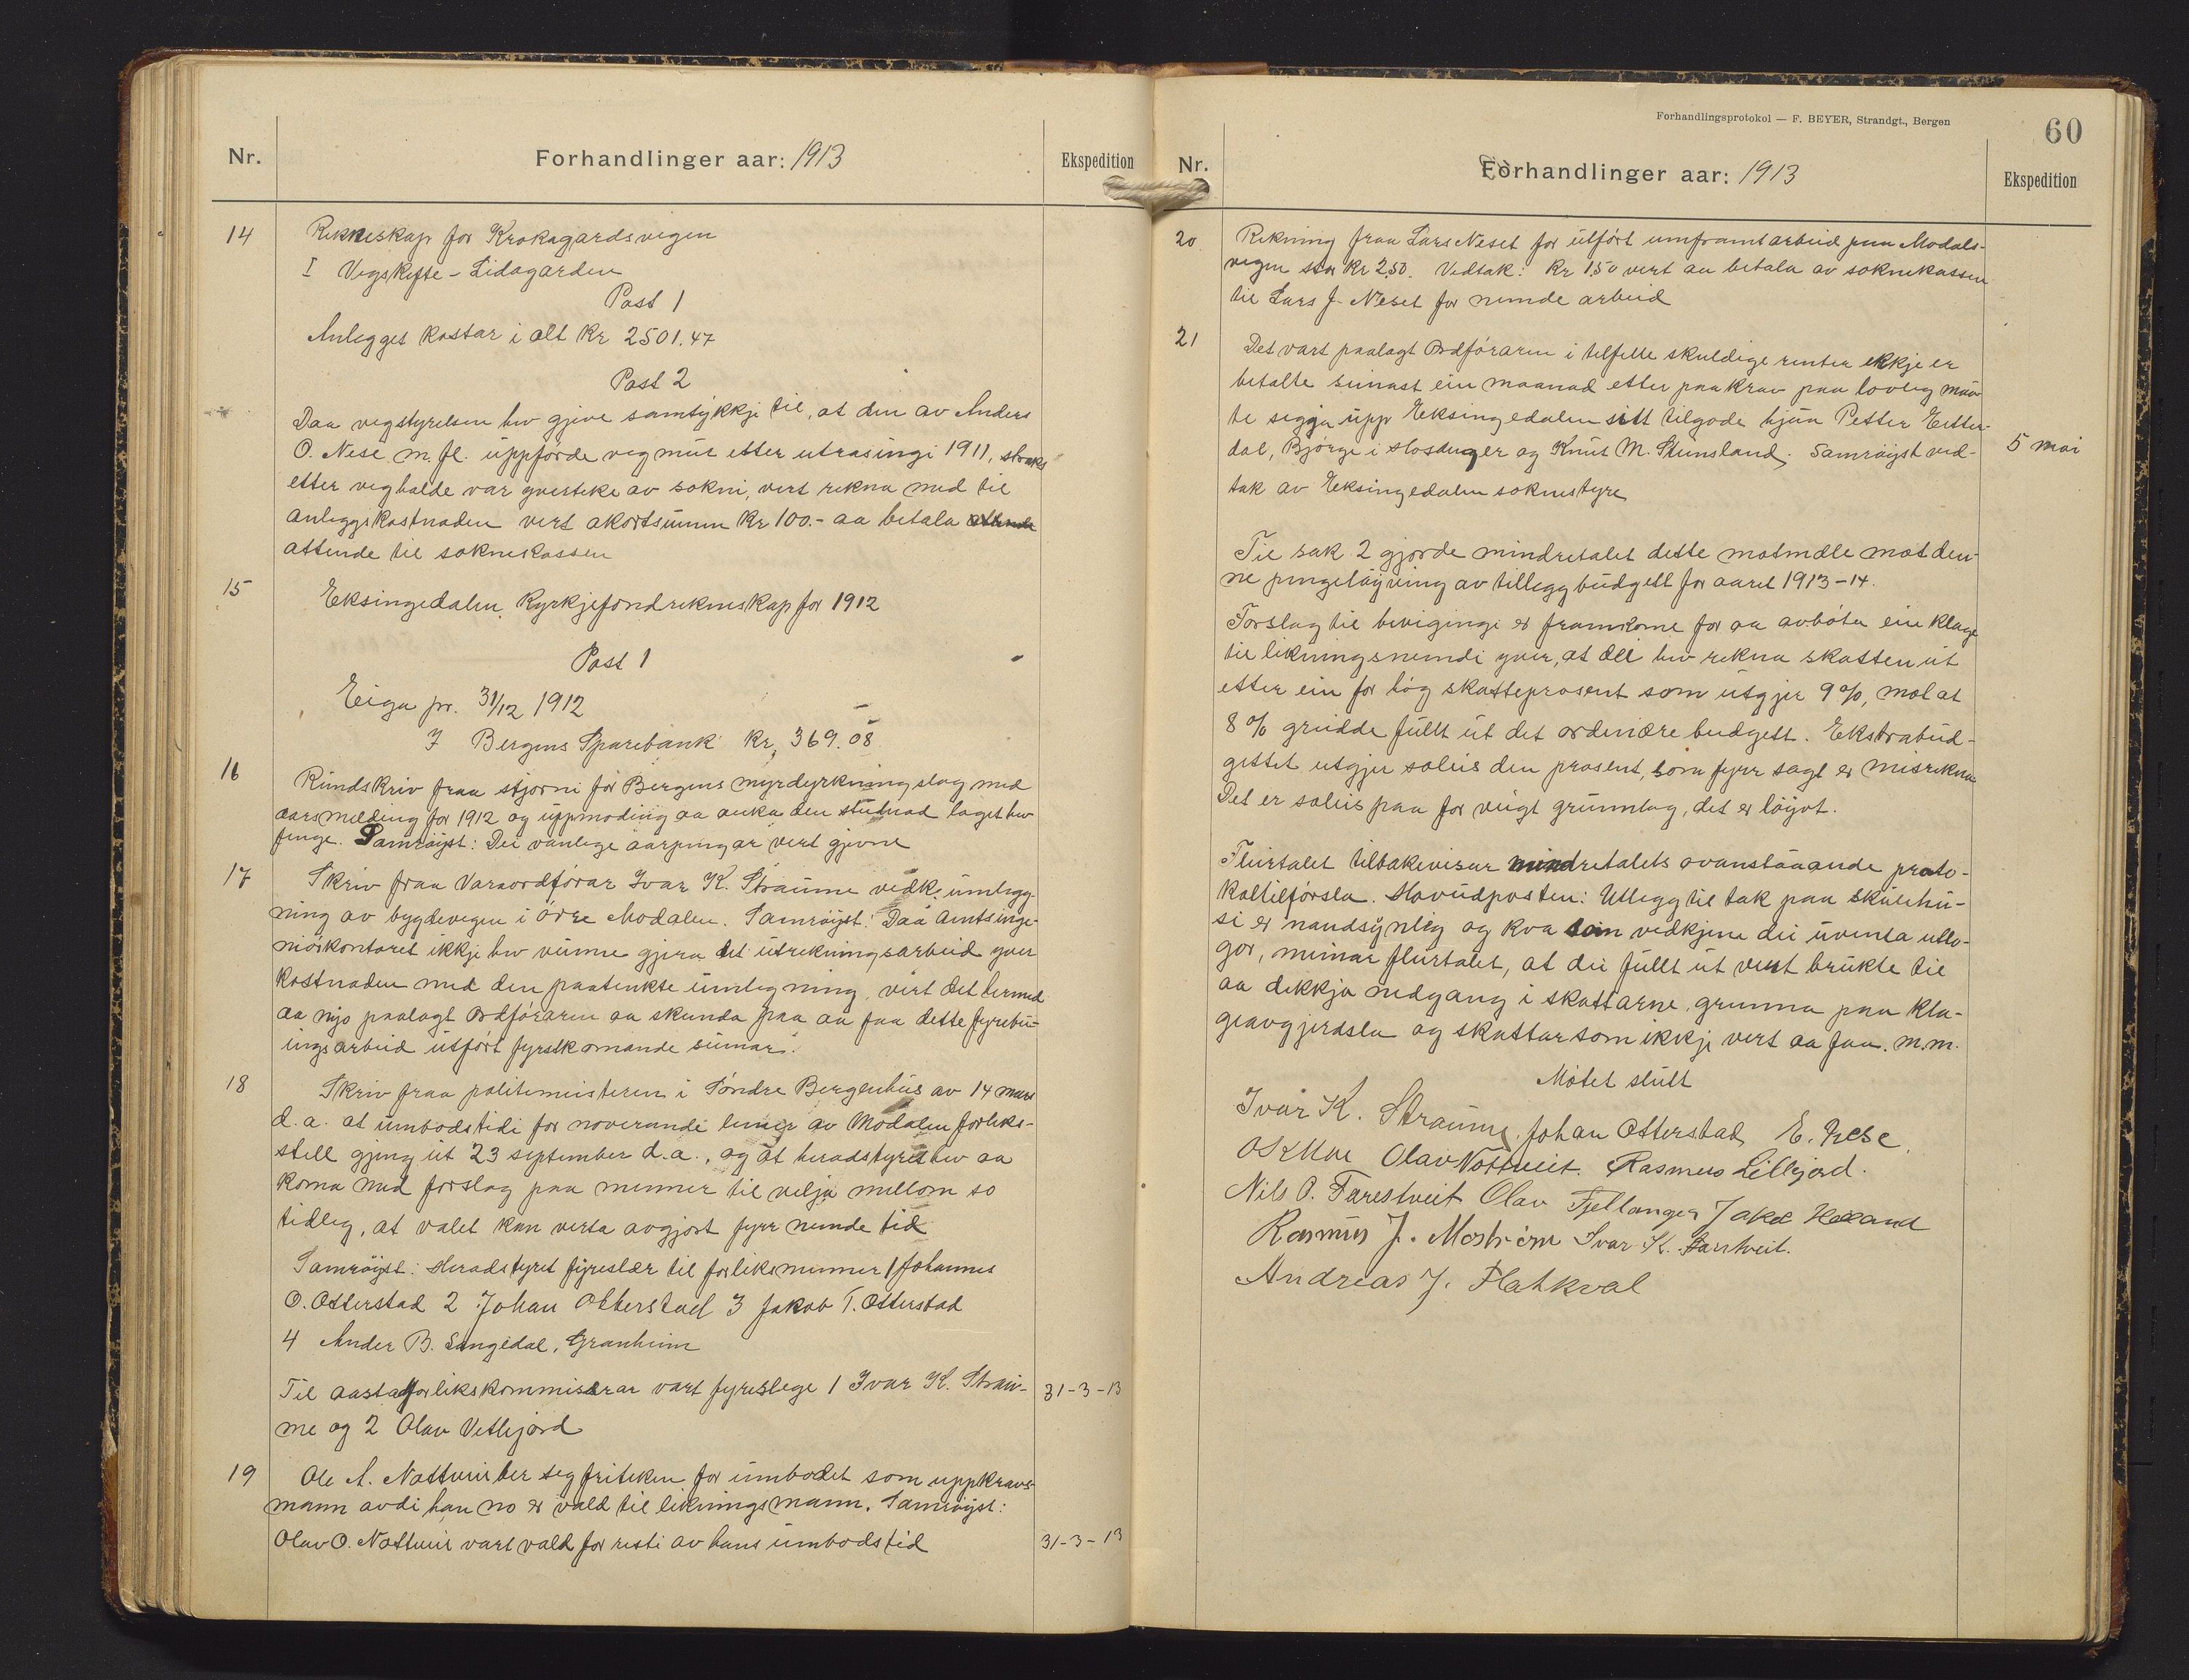 Nr.
Forhandlinger aar: 1913
Ekspedition
14
Rekneskap for Krokagardsvegen
I Vegskifte - Lidagarden
Post 1
Anlegget kostar i alt Kr 2501.47
Post 2
Daa vegstyrelsen hev gjeve samtykkje til, at den av Anders
O. Nese m.fl. uppførde vegmur etter utrasingi 1911, straks
etter veghalde var yverteke av sokni, vert rekna med til
anleggskostnaden vert akortsummen Kr 100.- aa betala
attende til soknekassen
15
Eksingedalen Kyrkjefondrekneskap for 1912
Post 1
Eiga pr. 31/12 1912
I Bergens Sparebank Kr, 369.08
16
Rundskriv fraa stjorni for Bergens myrdyrkningslag med
aarsmelding for 1912 og uppmoding aa auka den studnad laget hev
fenge. Samrøyst: Dei vanlege aarpengar vert gjevne
17
Skriv fraa Varaordførar Ivar K. Straume vedk. umlegg-
ning av bygdevegen i øvre Modalen. Samrøyst: Daa Amtsinge-
niørkontoret ikkje hev vunne gjera det utrekningsarbeid yver
kostnaden med den paatenkte umlegning, vert det hermed
aa nyo paalagt Ordføraren aa skunda paa aa faa dette fyrebu-
ingsarbeid utført fyrstkomande sumar.
18
Skriv fraa politemeisteren i Søndre Bergenhus av 14 mars
d.a. at umbodstidi for noverandi lemer av Modalen forliks-
stell gjeng ut 23 september d.a., og at heradstyret hev aa
koma med forslag paa menner til velja mellom so
tidleg, at valet kan verta avgjort fyrr nemde tid
Samrøyst: Heradstyret fyreslær til forliksmenner 1 Johannes
O. Otterstad 2 Johan Otterstad 3 Jakob T. Otterstad
4 Ander B. Sengedal, Granheim
Til aastadforlikskommiserar vart fyreslege 1 Ivar K. Strau-
31-3-13
me og 2 Olav Vetlejord
19
Ole A. Nottveit ber seg friteken for umbodet som uppkravs-
mann avdi han no er vald til likningsmann. Samrøyst:
Olav O. Nottveit vart vald for resti av hans umbodstid
31-3-13
Forhandlingsprotokol — F. BEYER, Strandgt., Bergen
60
Nr.
Forhandlinger aar: 1913
Ekspedition
20
Rekning fraa Lars Neset for utført umframtarbeid paa Modals-
vegen stor Kr 2.50. Vedtak: Kr 1.50 vert aa betala av soknekassen
til Lars J. Neset for nemde arbeid
21
Det vart paalagt Ordføraren i tilfelle skuldige renter ikkje er
betalte seinast ein maanad etter paakrav paa lovleg maa-
te segja upp Eksingedalen sitt tilgode hjaa Petter Eitter-
dal, Bjørge i Hosanger og Knut M. Stunsland. Samrøyst ved-
5 mai
tak av Eksingedalen soknestyre
Til sak 2 gjorde mindretalet dette motmæle mot den-
ne pengeløyving av tilleggbudgett for aaret 1913-14.
Forslag til bevigingi er framkome for aa avbøta ein klage
til likningsnemdi yver, at dei hev rekna skatten ut
etter ein for høg skatteprosent som utgjer 9%, mot at
8% greidde fullt ut det ordenære budgett. Ekstrabud-
gettet utgjer soleis den prosent, som fyrr sagt er misrekna
Det er soleis paa for veigt grunnlag, det er løyvt.
Fleirtalet tilbakeviser mindretalets ovanstaaande proto-
koltilførsla. Hovudposten: Utlegg til tak paa skulehu-
si er naudsynleg og kva som vedkjem dei uventa utlo-
gor, meinar fleirtalet, at dei fullt ut vert brukte til
aa dekkja nedgang i skattarne, grunna paa kla-
geavgjerdsla og skattar som ikkje vert aa faa. m.m.
Møtet slutt
Ivar K. Straume, Johan Otterstad E. Nese.
Olav Nottveit. Rasmus Lillejord.
Nils O. Farestveit Olav Fjellanger Jakob Helland
Rasmus J. Mostrøm Ivar K. Farestveit.
Andreas J. Flatkval